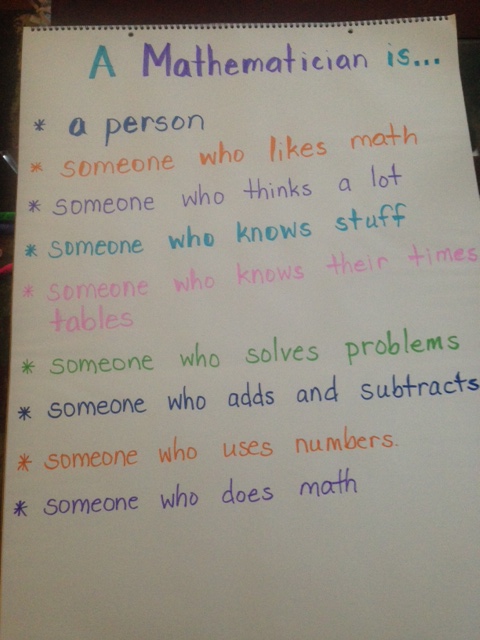 A Mathematician is...
* a person
* someone who likes math
* someone who thinks a lot
* someone who knows stuff
* someone who knows their times
tables
* someone who solves problems
* someone who adds and subtracts
* someone who uses numbers.
* someone who does math